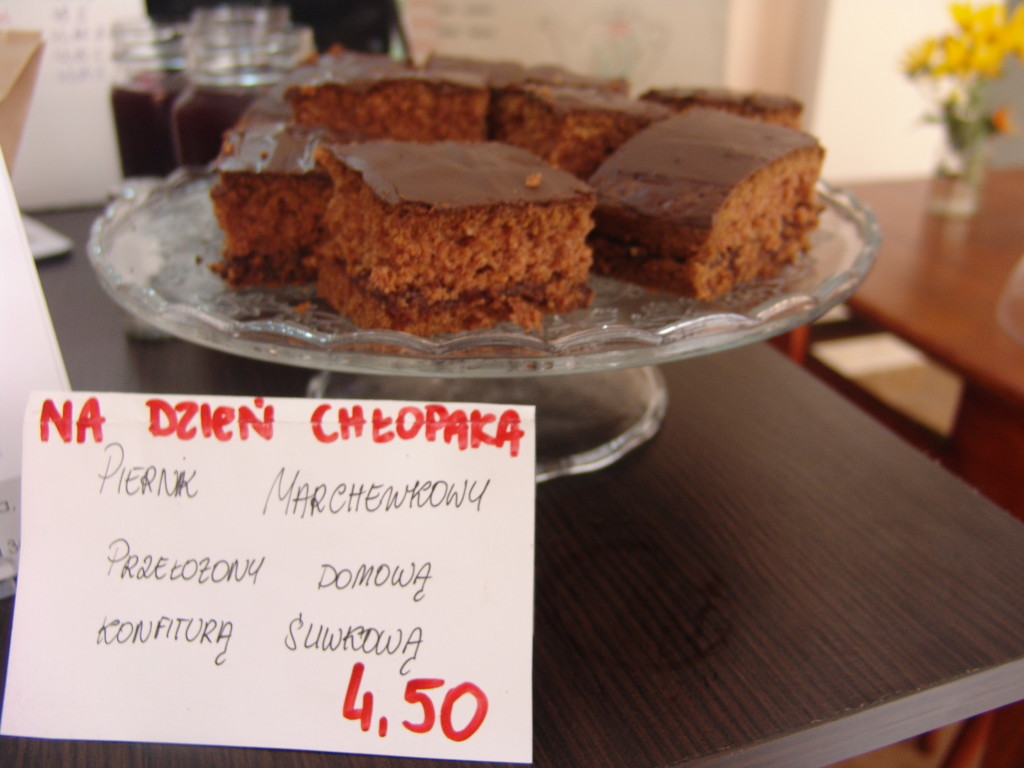 NA DZIEŃ CHŁOPAKA
PIERNIK MARCHEWKOWY
PRZEŁOŻONY DOMOWĄ
KONFITURĄ ŚLIWKOWĄ
4,50